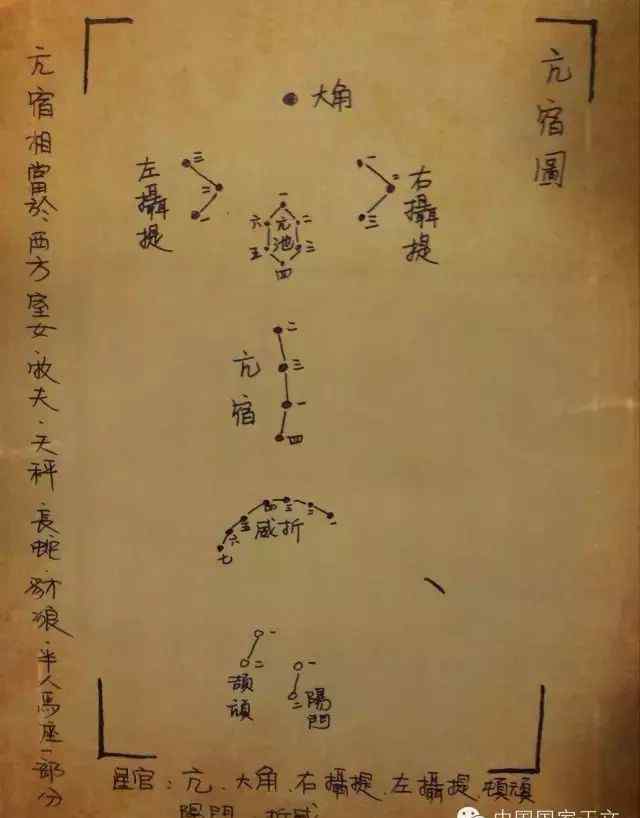 亢宿圖
大角
左攝提
三
二
一
右攝提
一
二
三
亢池
一
二
三
四
五
六
亢宿
二
三
一
四
折威
一
二
三
四
五
六
七
頡頏
一
二
陽門
一
二
亢宿相當於西方室女、牧夫、天秤、長蛇、豺狼、半人馬座一部分
星官：亢、大角、右攝提、左攝提、頓頑
陽門、折威
中国国家天文